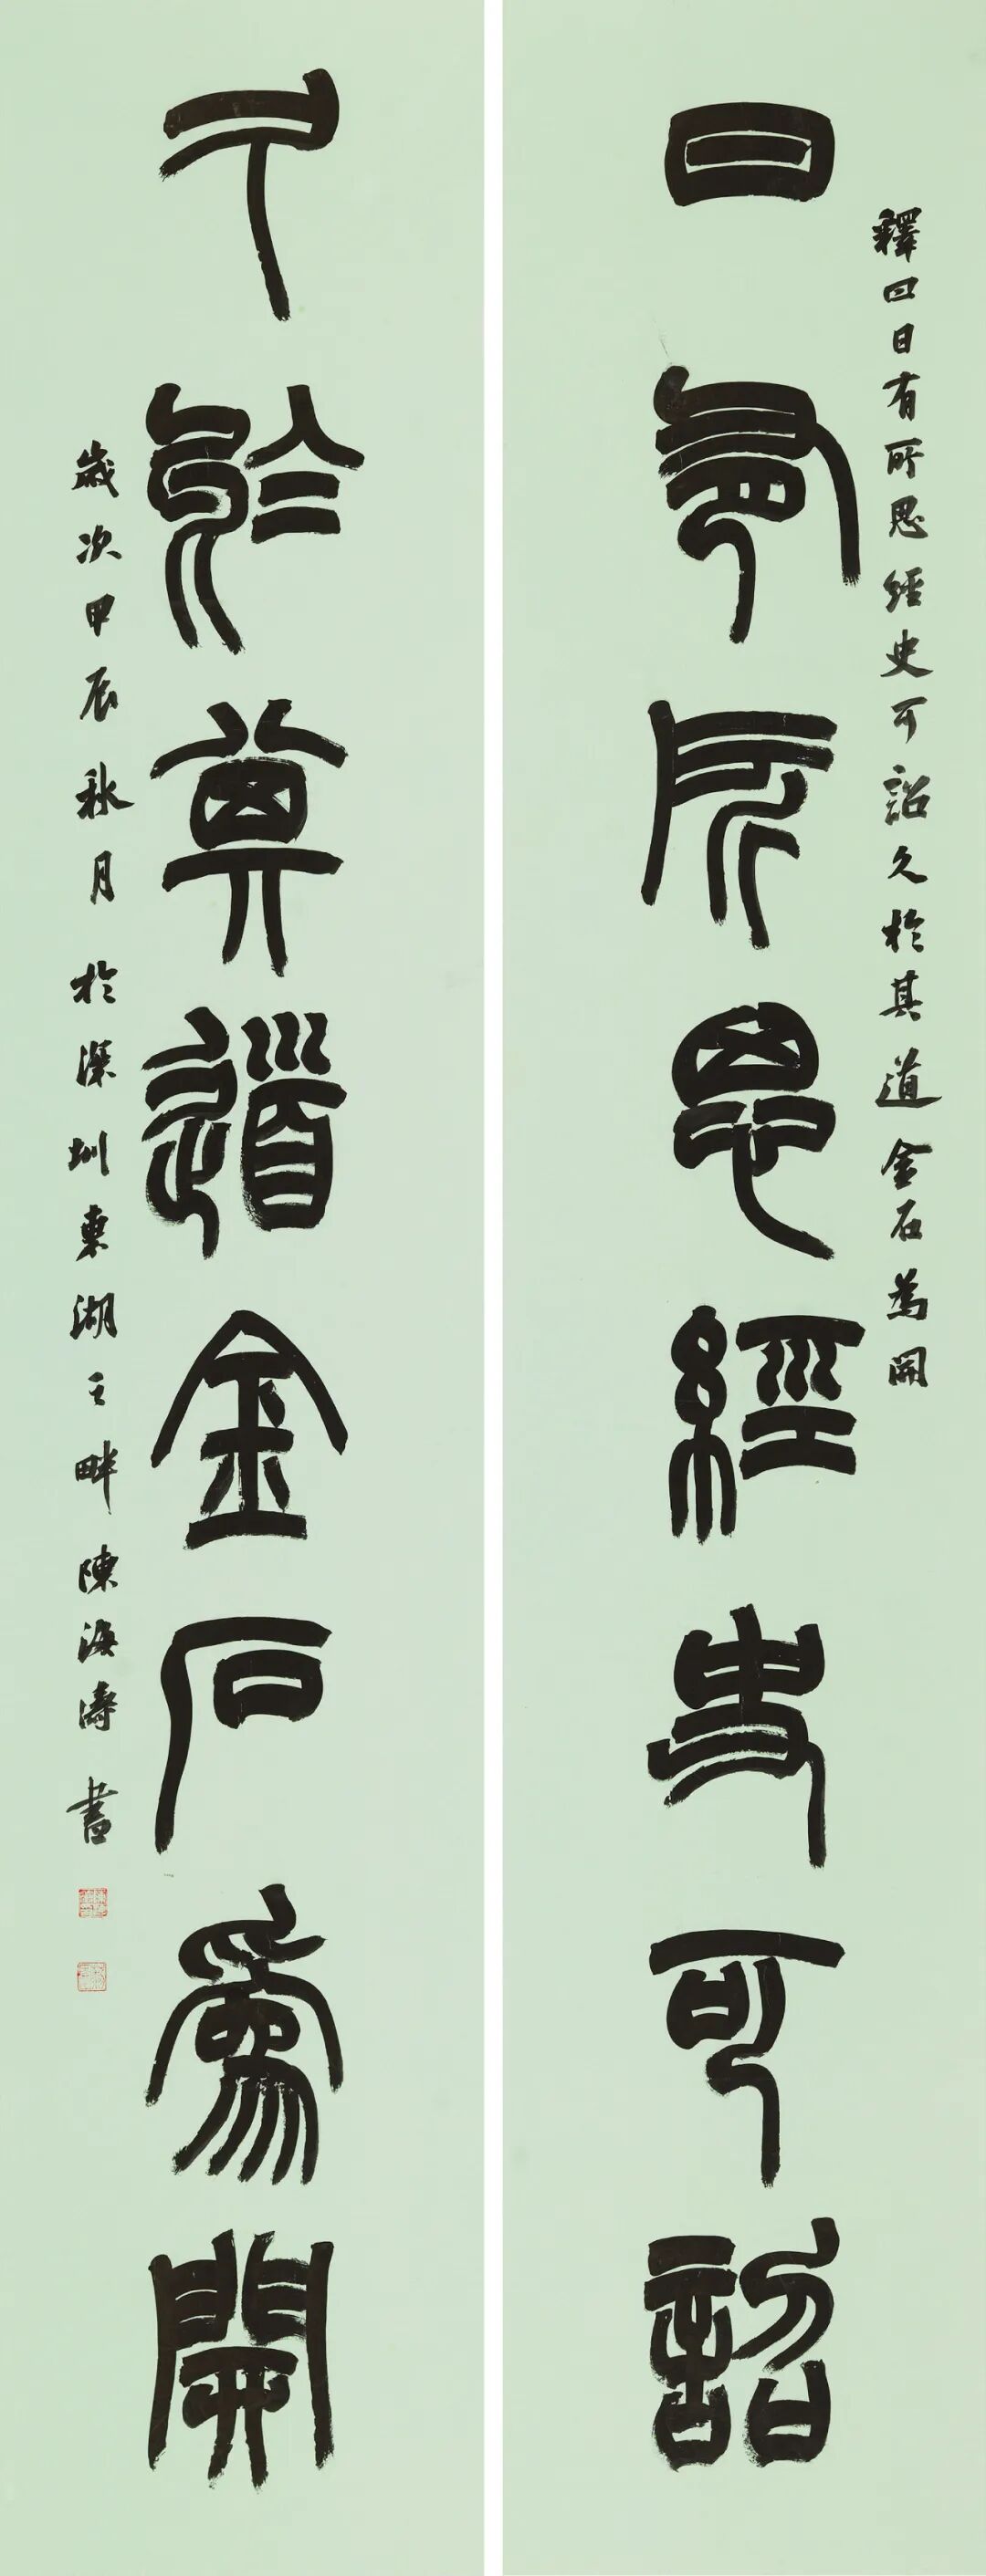 釋曰日有所思經史可詔久於其道金石為開
日有所思經史可詔
久於其道金石為開
歲次甲辰秋月於深圳東湖之畔陳海濤書